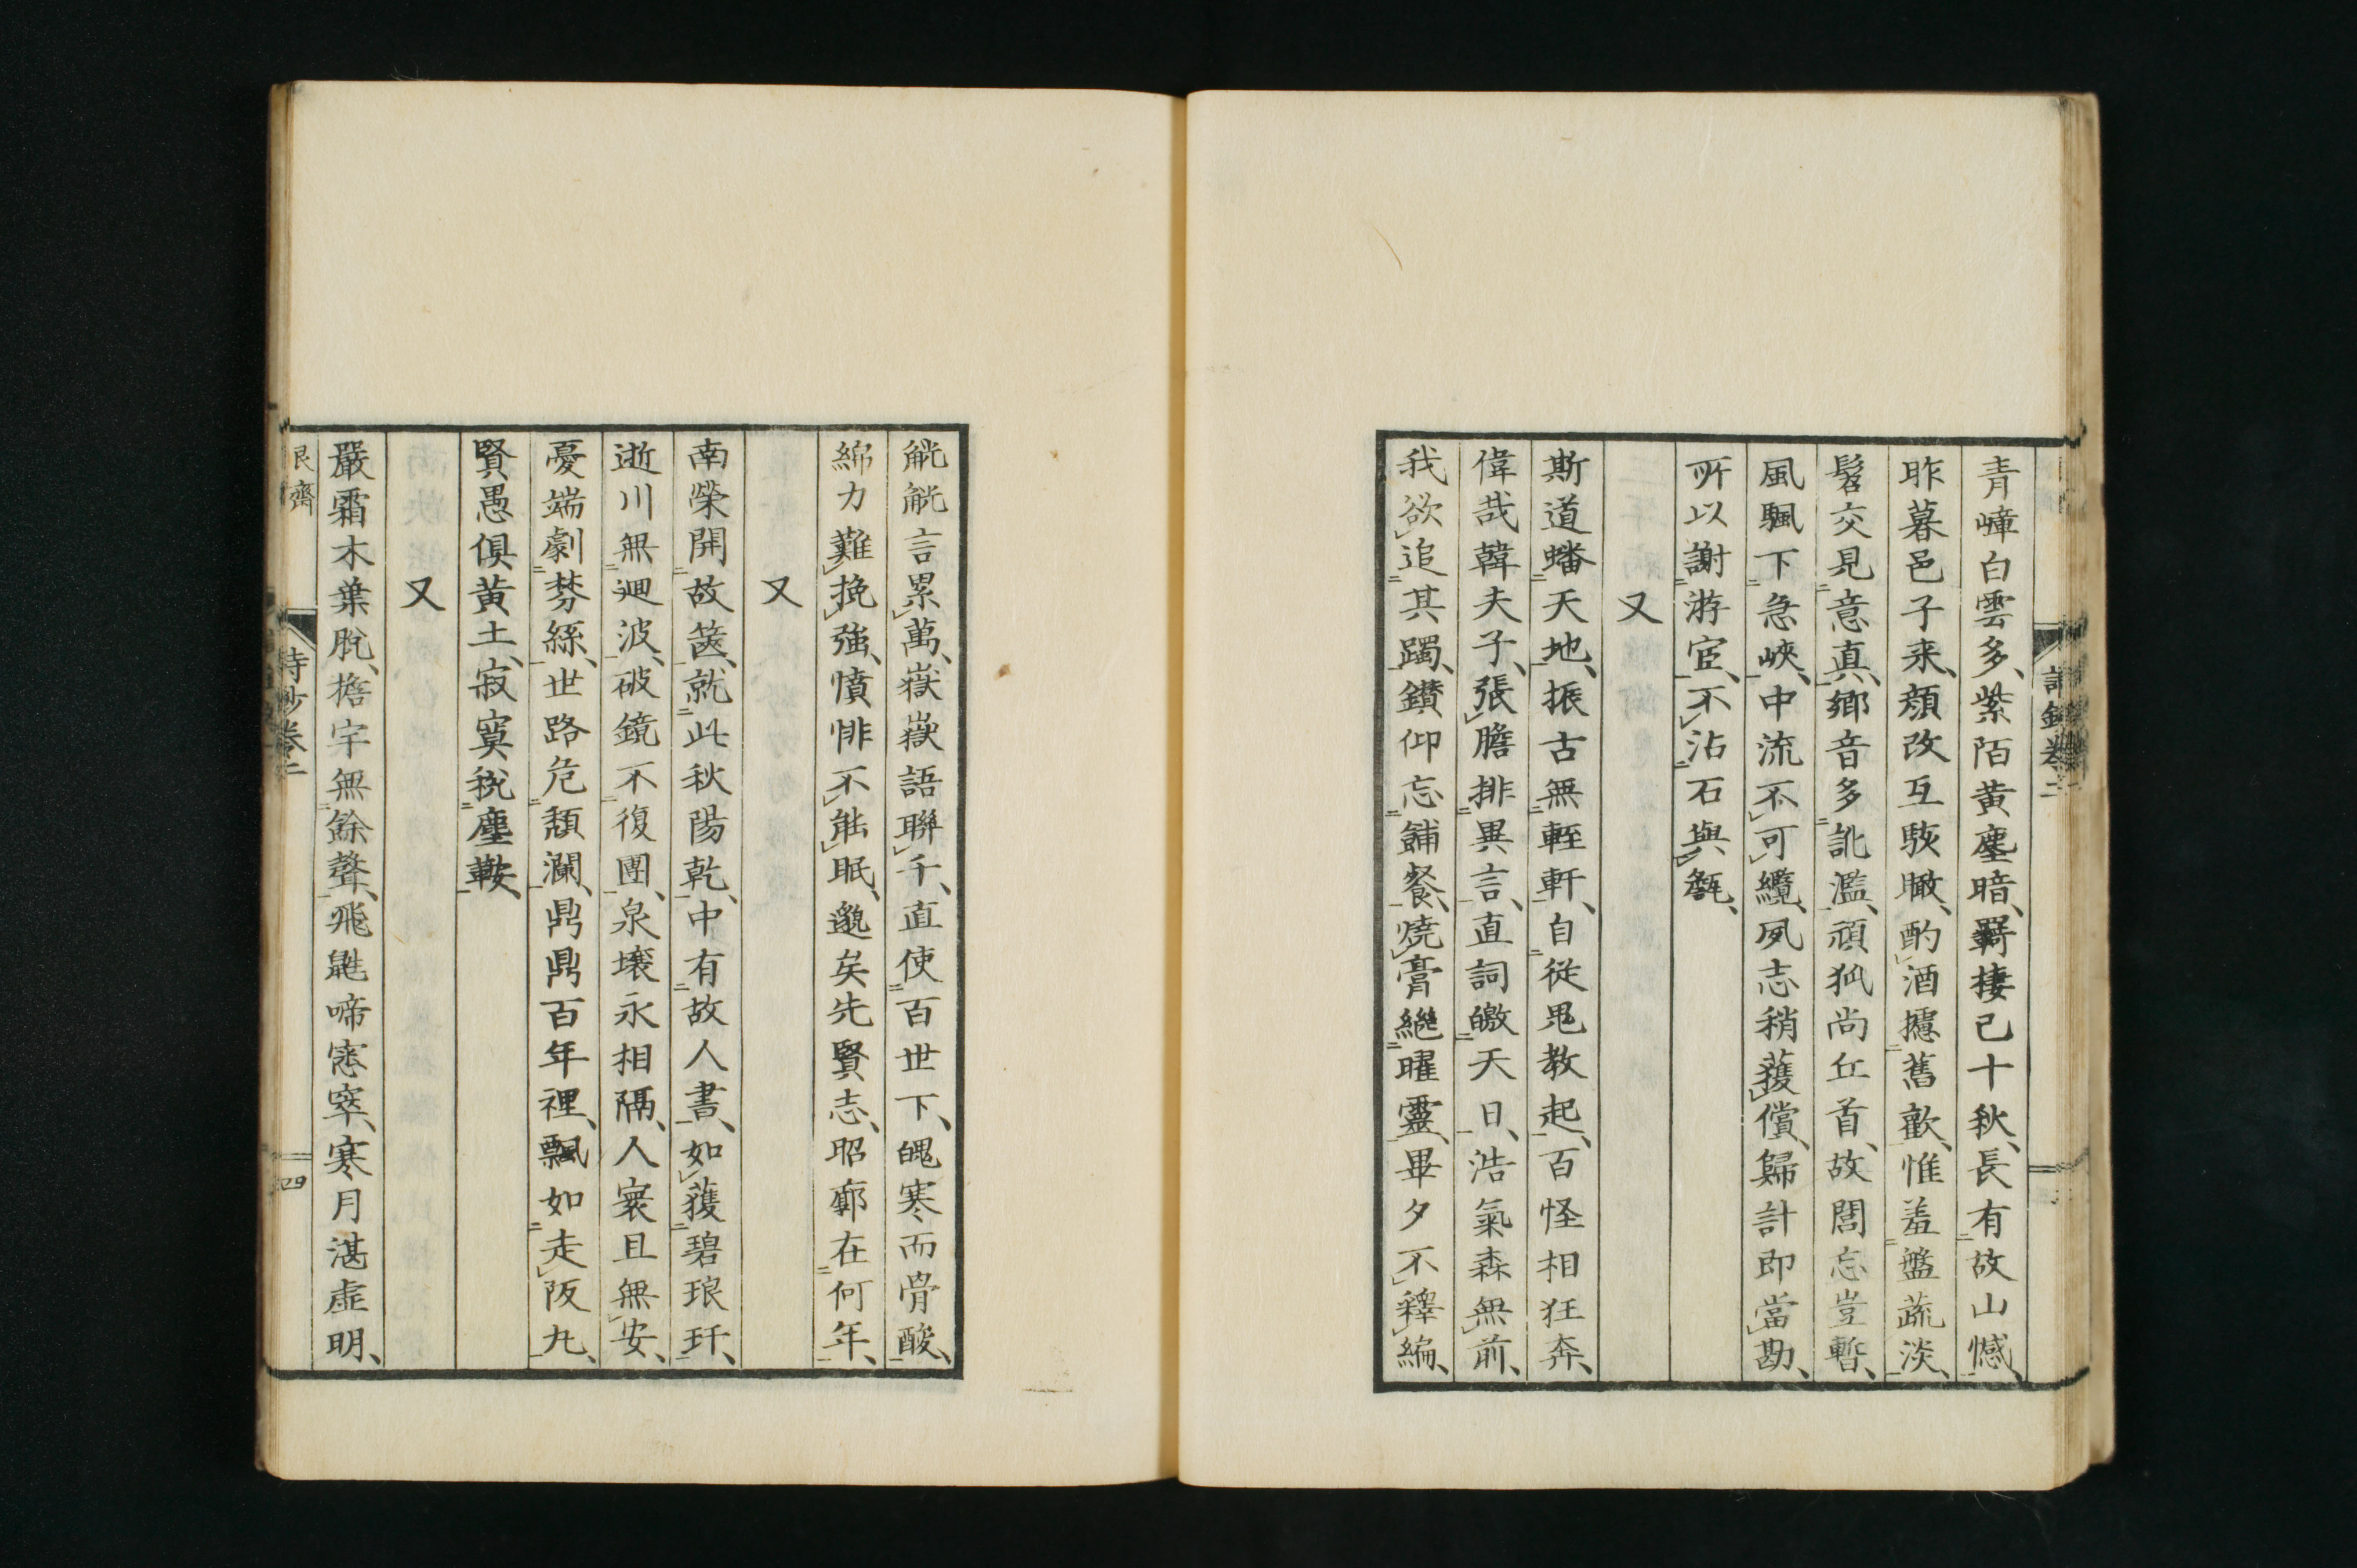 青嶂白雲多、紫陌黄塵暗、羇棲已十秋、長有故山憾、
昨暮邑子来、顔改互駭瞰、酌酒攄舊歡、惟羞盤蔬淡、
髫交見意真、郷音多訛濫、頑狐尚丘首、故閭忘豈暫、
風颿下急峽、中流不可纜、夙志稍獲償、歸計即當勘、
所以謝游宦、不沾石與甔、
又
斯道蟠天地、振古無輊軒、自從鬼教起、百怪相狂奔、
偉哉韓夫子、張膽排異言、直詞皦天日、浩氣森無前、
我欲追其躅、鑽仰忘餔餐、焼膏繼曜靈、畢夕不釋編、
觥觥言累萬、嶽嶽語聯千、直使百世下、魄寒而骨酸、
綿力難挽強、憤悱不能眠、邈矣先賢志、昭廓在何年、
又
南榮開故篋、就此秋陽乾、中有故人書、如獲碧琅玕、
逝川無廻波、破鏡不復團、泉壌永相隔、人寰且無安、
憂端劇棼絲、世路危頽瀾、鼎鼎百年裡、飄如走阪丸、
賢愚倶黄土、寂寞税塵鞍、
又
嚴霜木葉脱、檐宇無餘聲、飛鼪啼窓窣、寒月湛虚明、
詩鈔卷二
艮齋
詩鈔卷二
四